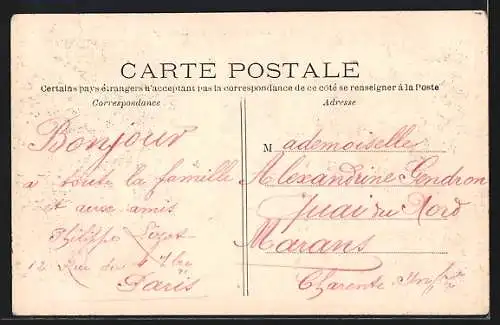 CARTE POSTALE
Certains pays étrangers n'acceptant pas la correspondance de ce côté se renseigner à la Poste
Correspondance
Adresse
Bonjour
à toute la famille
et aux amis
Philippe
12 Rue du 4 7bre
Paris
Mademoiselle
Alexandrine Gendron
Quai du Nord
Marans
Charente Infre